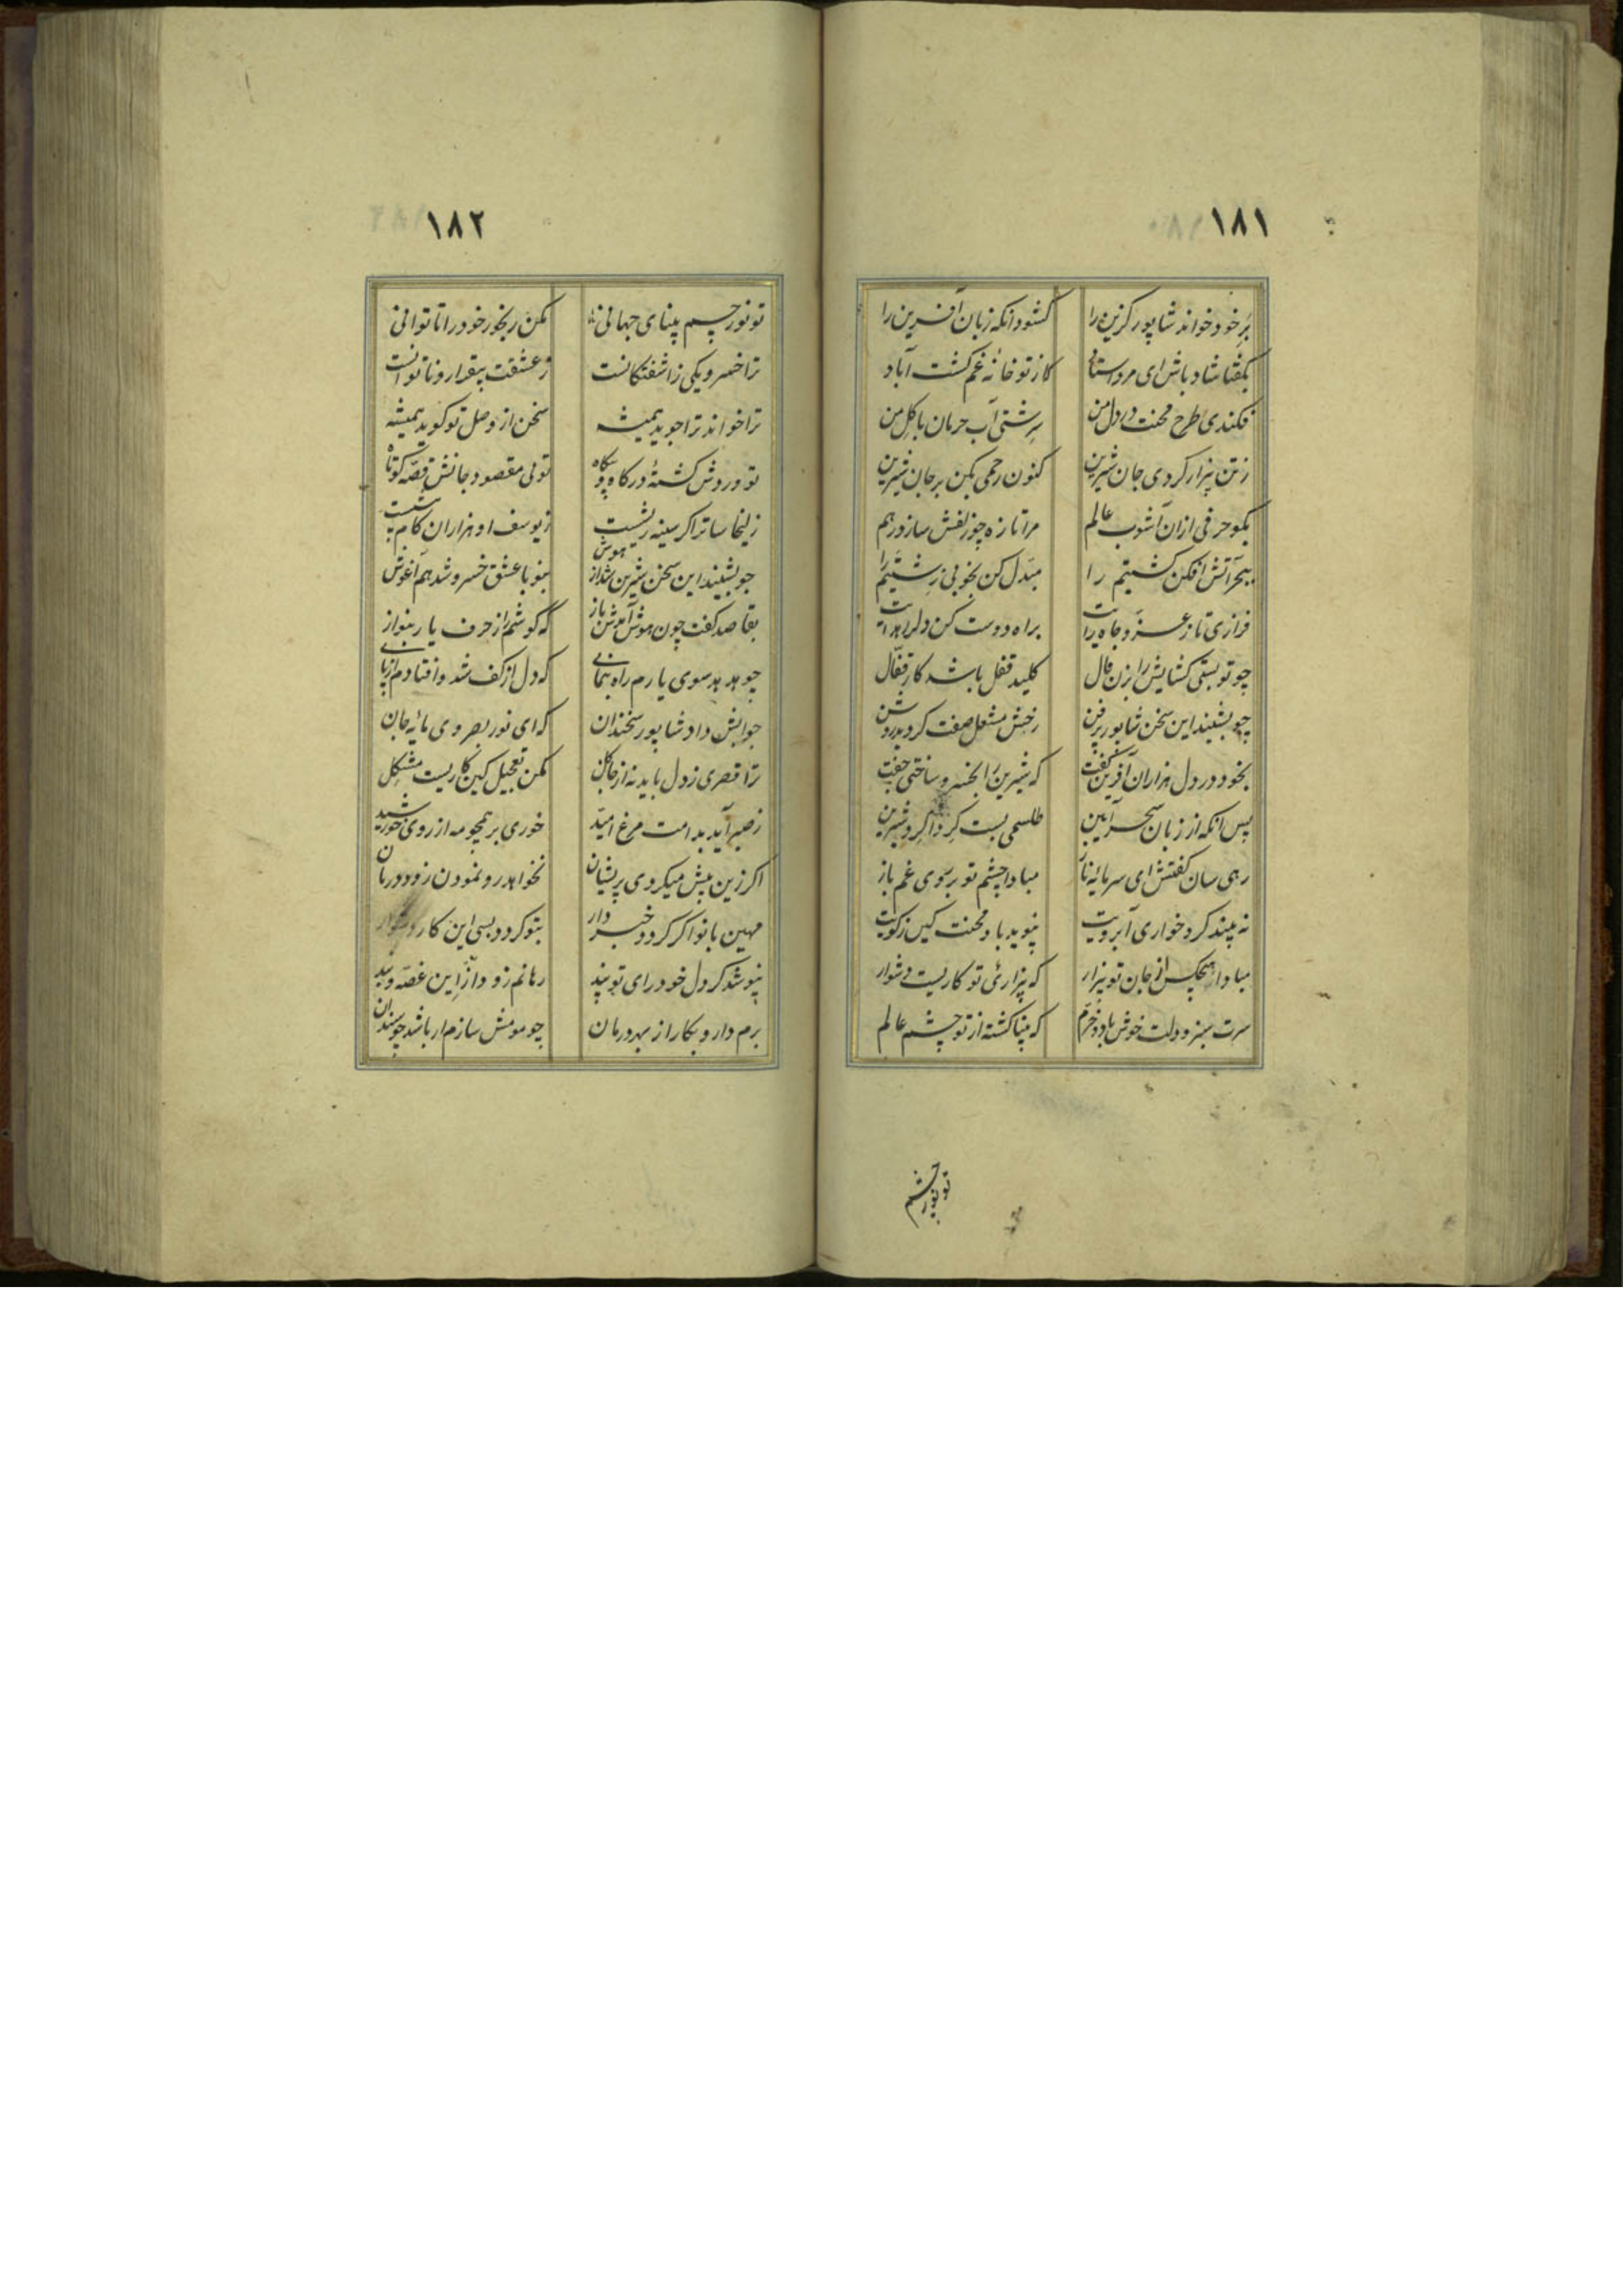 ۱۸۱
برِ خود خواند شاپور گزین را گشود انگه زبان آفرین را
بگفتا شاد باش ای مرد استاد کاز تو خانهٔ غم گشت آباد
فکندی طرح محنت در دل من سرشتی آب حرمان با گِل من
ز تن بیزار کردی جان شیرین کنون رحمی بکن بر جان شیرین
بگو حرفی ازان آشوب عالم مرا تازه چو زلفش ساز درهم
ببحر آتش افکن کشتیم را مبدّل کن بخوبی زشتیم را
فرازی تا ز عزّ و جاه رایت براه دوست کن دلرا هدایت
چو تو بستی گشایش را بزن فال کلید قفل باشد کار قفّال
چو بشنید این سخن شاپور پرفن رخش مشعل صفت گردید روشن
بخود در دل هزاران آفرین گفت که شیرین را بخسرو ساختی جفت
پس انگه از زبان سحر آیین طلسمی بست گرداگرد شیرین
رهی سان گفتش ای سرمایه ناز مبادا چشم تو بر سوی غم باز
نه بیند گرد خواری آبرویت نپوید باد محنت گین ز کویت
مبادا هیچکس از جان تو بیزار که بیزاریٔ تو کاریست دشوار
سرت سبز و دلت خوش باد و خرّم که بینا گشته از تو چشم عالم
تو نور چشم
۱۸۲
تو نور چشم بینای جهانی مکن رنجور خود را تا توانی
ترا خسرو یکی ز اشفتگانست ز عشقت بیقرار و ناتوانست
ترا خواند ترا جوید همیشه سخن از وصل تو گوید همیشه
تو وردش گشتهٔ در گاه و بیگاه تویی مقصود جانش قصّه کوتاه
زلیخا سا ترا گر سینه ریشست ز یوسف او هزاران گام پیشست
چو بشنید این سخن شیرین شد از هوش بنو با عشق خسرو شد هم آغوش
بقاصد گفت چون هوش آمدش باز که گوشم را ز حرف یار بنواز
چو هدهد سوی یارم راه بنمای که دل از کف شد و افتادم از پای
جوابش داد شاپور سخندان که ای نور بصر وی مایه جان
ترا قصری ز دل باید نه از گل مکن تعجیل کین کاریست مشکل
ز صبر آید بدامت مرغ امیّد خوری بر همچو مه از روی خورشید
اگر زین بیش میگردی پریشان نخواهد رو نمودن زود درمان
مهین بانو اگر گردد خبردار بتو گردد بسی این کار دشوار
بپوشد گر دل خود رای تو پند رهانم زودت از این غصّه و بند
برم دارو بکار از بهر درمان چو مومش سازم ار باشد چو سندان